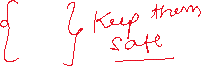 { } Keep them
safe